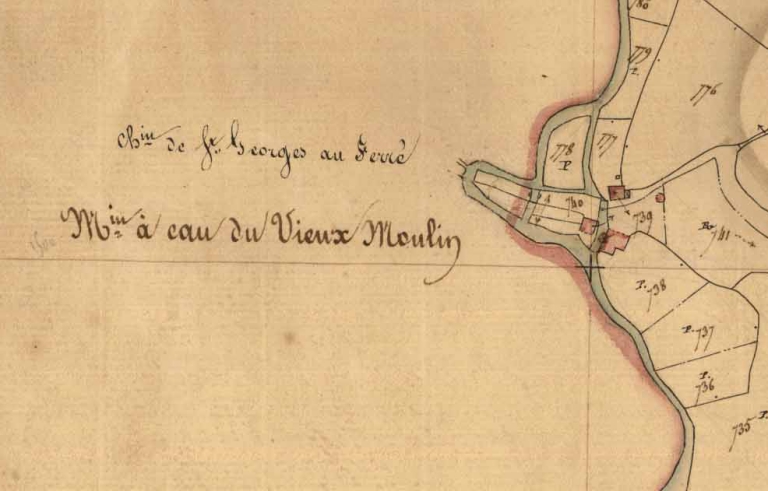 Ch.in de St. Georges au Ferré
M.in à eau du Vieux Moulin
80
779
776
778
P
777
740
739
741
P. 738
P. 737
P. 736
735 P.